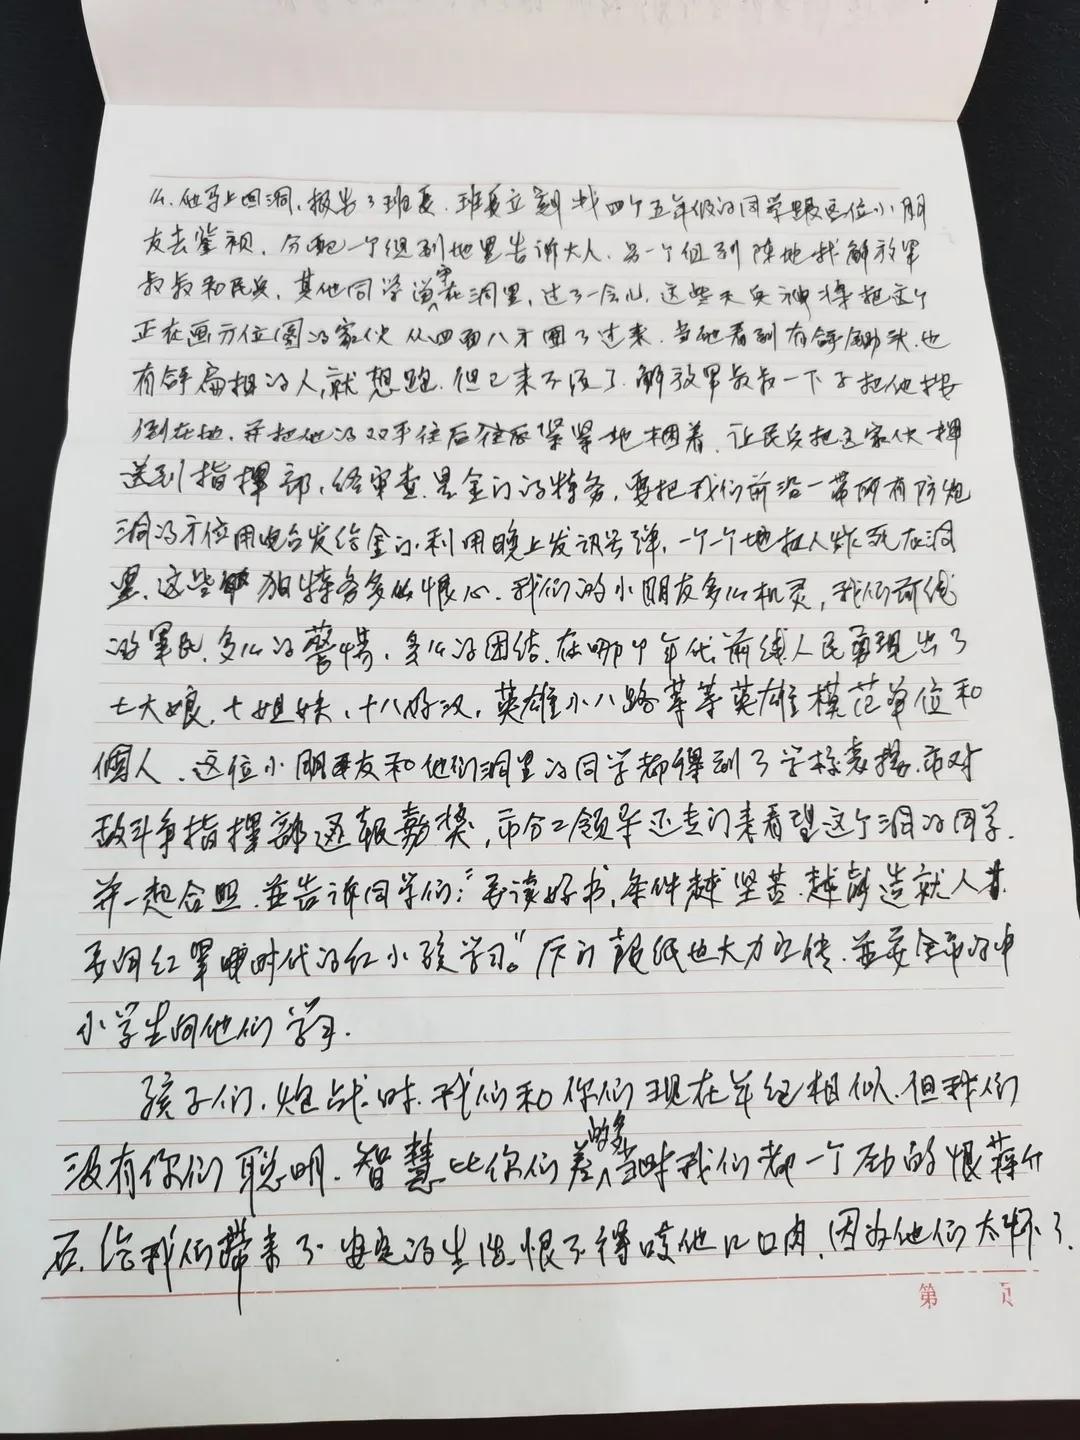 么.他马上回洞,报告了班长.班长立刻找四个五年级的同学跟这位小朋
友去监视.分配一个组到地里告诉大人.另一个组到阵地找解放军
叔叔和民兵,其他同学道守在洞里,过了一会儿,这些天兵神将把这个
正在画方位图的家伙从四面八方围了过来.当他看到有锄头.也
有扁担的人,就想跑.但已来不及了.解放军叔叔一下子把他按
倒在地,并把他的双手往后往后紧紧地捆着.让民兵把这家伙押
送到指挥部,经审查.是金门的特务,要把我们前沿一带所有防炮
洞的方位用电台发给金门.利用晚上发讯号弹,一个个地把人炸死在洞
里.这些特务多么恨心.我们的小朋友多么机灵,我们前线
的军民.多么的警惕,多么的团结.在哪个年代前线人民勇现出了
七大娘,七姐妹,十八好汉,英雄小八路等等英雄模范单位和
個人.这位小朋友和他们洞里的同学都得到了学校表扬.市对
敌斗争指挥部通报嘉奖,市分工领导还专门来看望这个洞的同学.
并一起合照.并告诉同学们:"要读好书,条件越坚苦.越能造就人才.
要向红军时代的红小孩学习"。厦门报纸也大力宣传.并要全市的中
小学生向他们学习.
孩子们.炮战时.我们和你们现在年纪相似.但我们
没有你们聪明.智慧比你们差的多当时我们都一个劲的恨蒋介
石.给我们带来了不安定的生活.恨不得咬他口肉.因为他们太坏了.
第 页